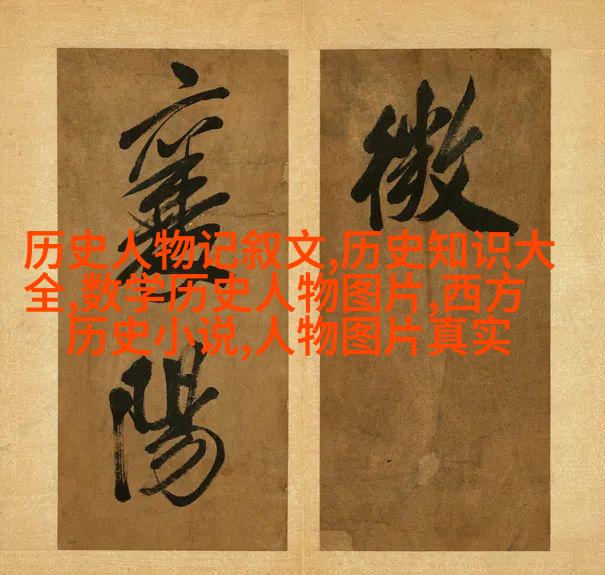 微
襄陽
历史人物记叙文,历史知识大
全,数学历史人物图片,西方
历史小说,人物图片真实